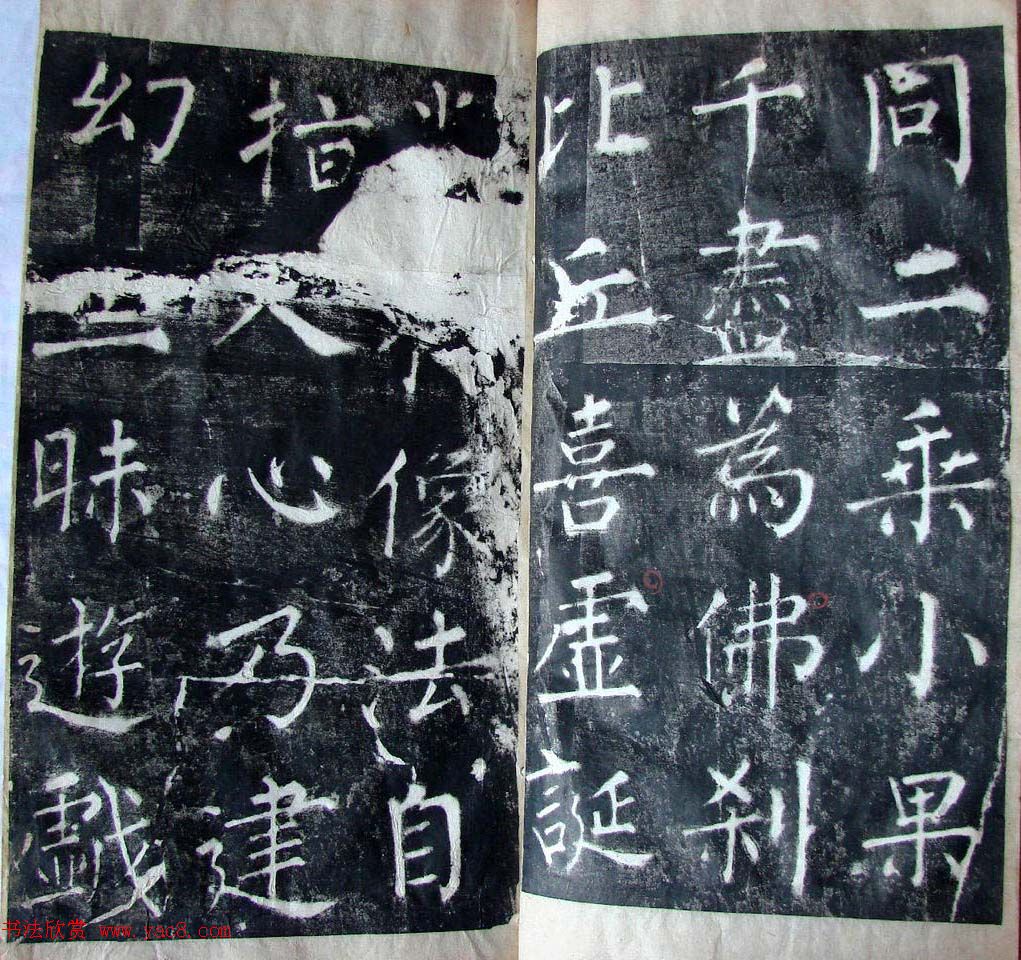 同二乘小果
千盡為佛刹
比丘喜虛誕
像法自
指人心乃建
幻三昧遊戲
书法欣赏 www.yac8.com